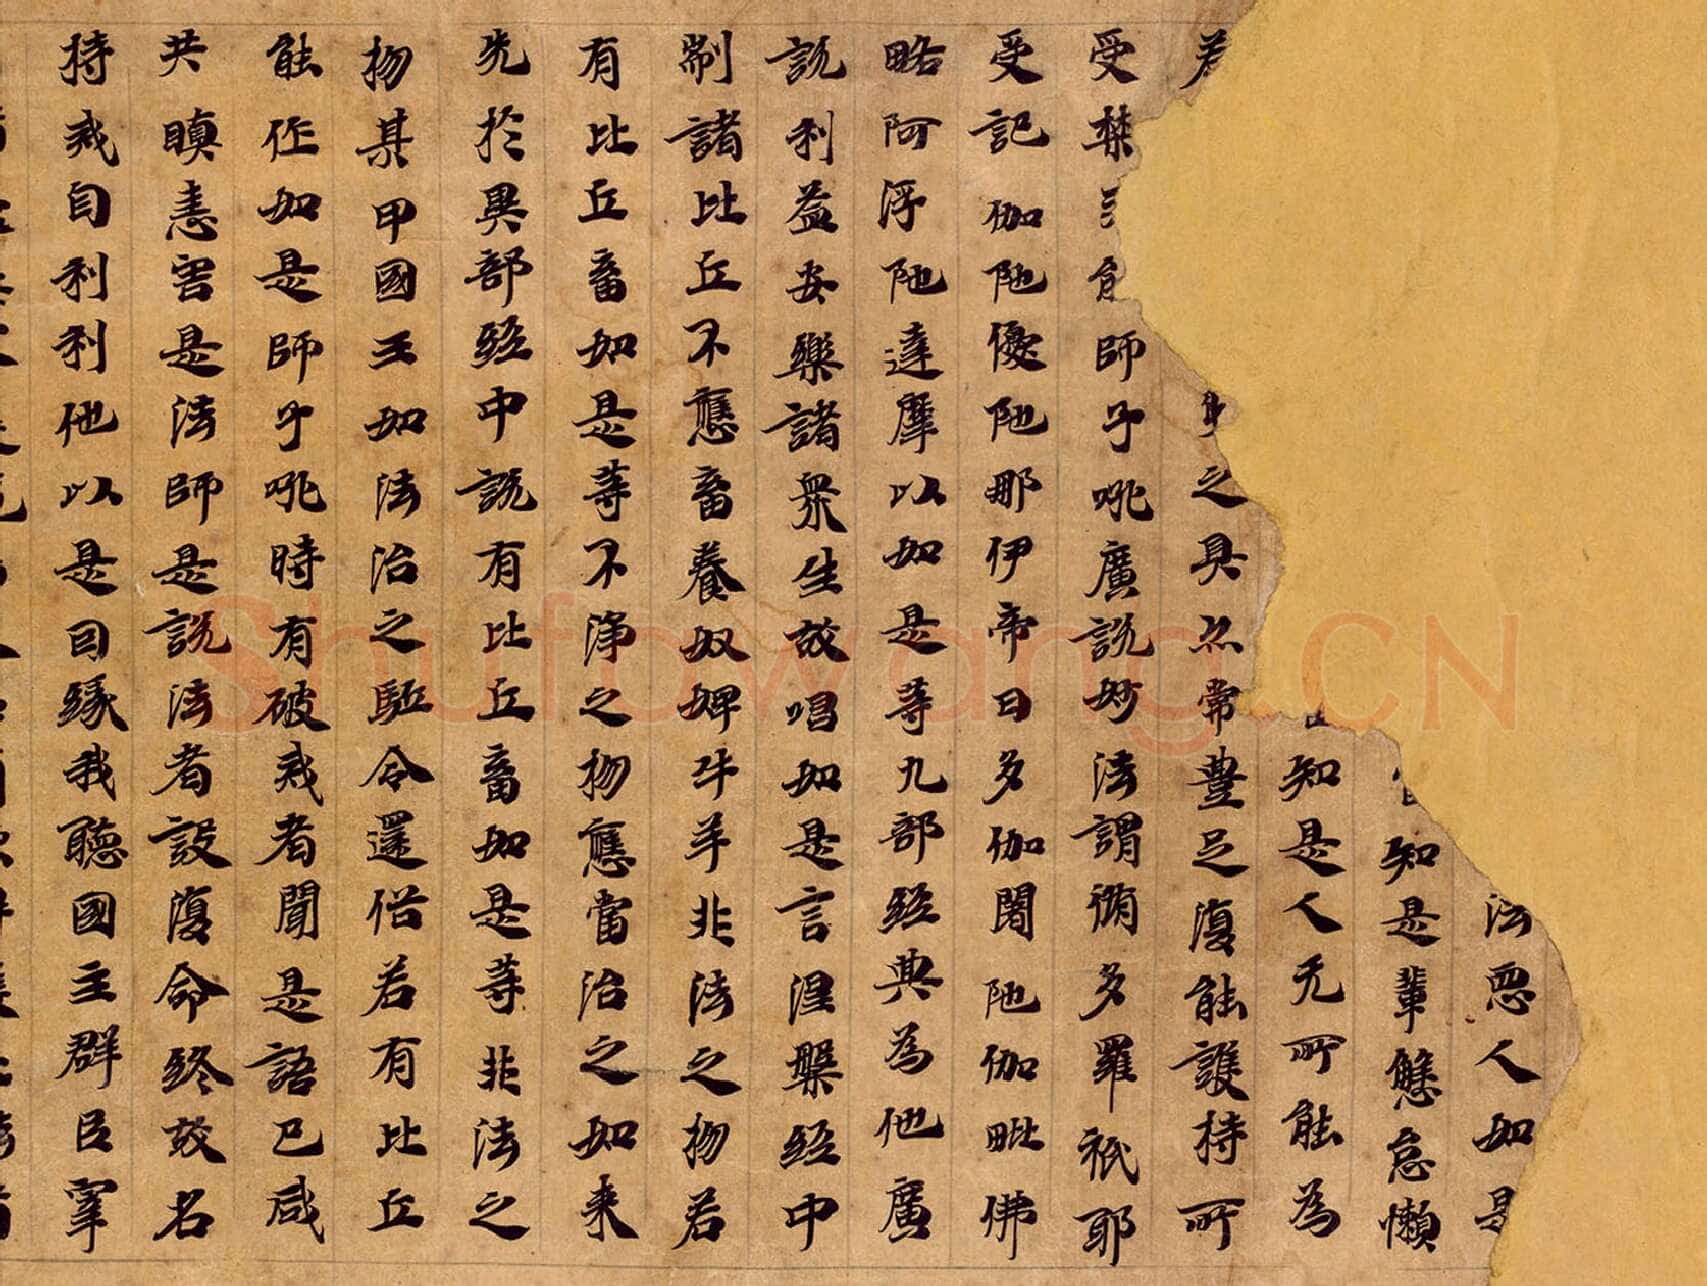 法惡人如是
當知是輩懈怠懶
知是人无所能為
若 之具亦常豐足復能護持所
受禁 能師子吼廣說妙法謂脩多羅祇耶
受記伽陁優陁那伊帝曰多伽闍陁伽毗佛
略阿浮陁達摩以如是等九部經典為他廣
說利益安樂諸眾生故唱如是言涅槃經中
制諸比丘不應畜養奴婢牛羊非法之物若
有比丘畜如是等不淨之物應當治之如来
先於異部經中說有比丘畜如是等非法之
物某甲國王如法治之駈令還俗若有比丘
能作如是師子吼時有破戒者聞是語已咸
共瞋恚害是法師是說法者設復命終故名
持戒自利利他以是因緣我聽國主群臣宰
Shufawang.CN